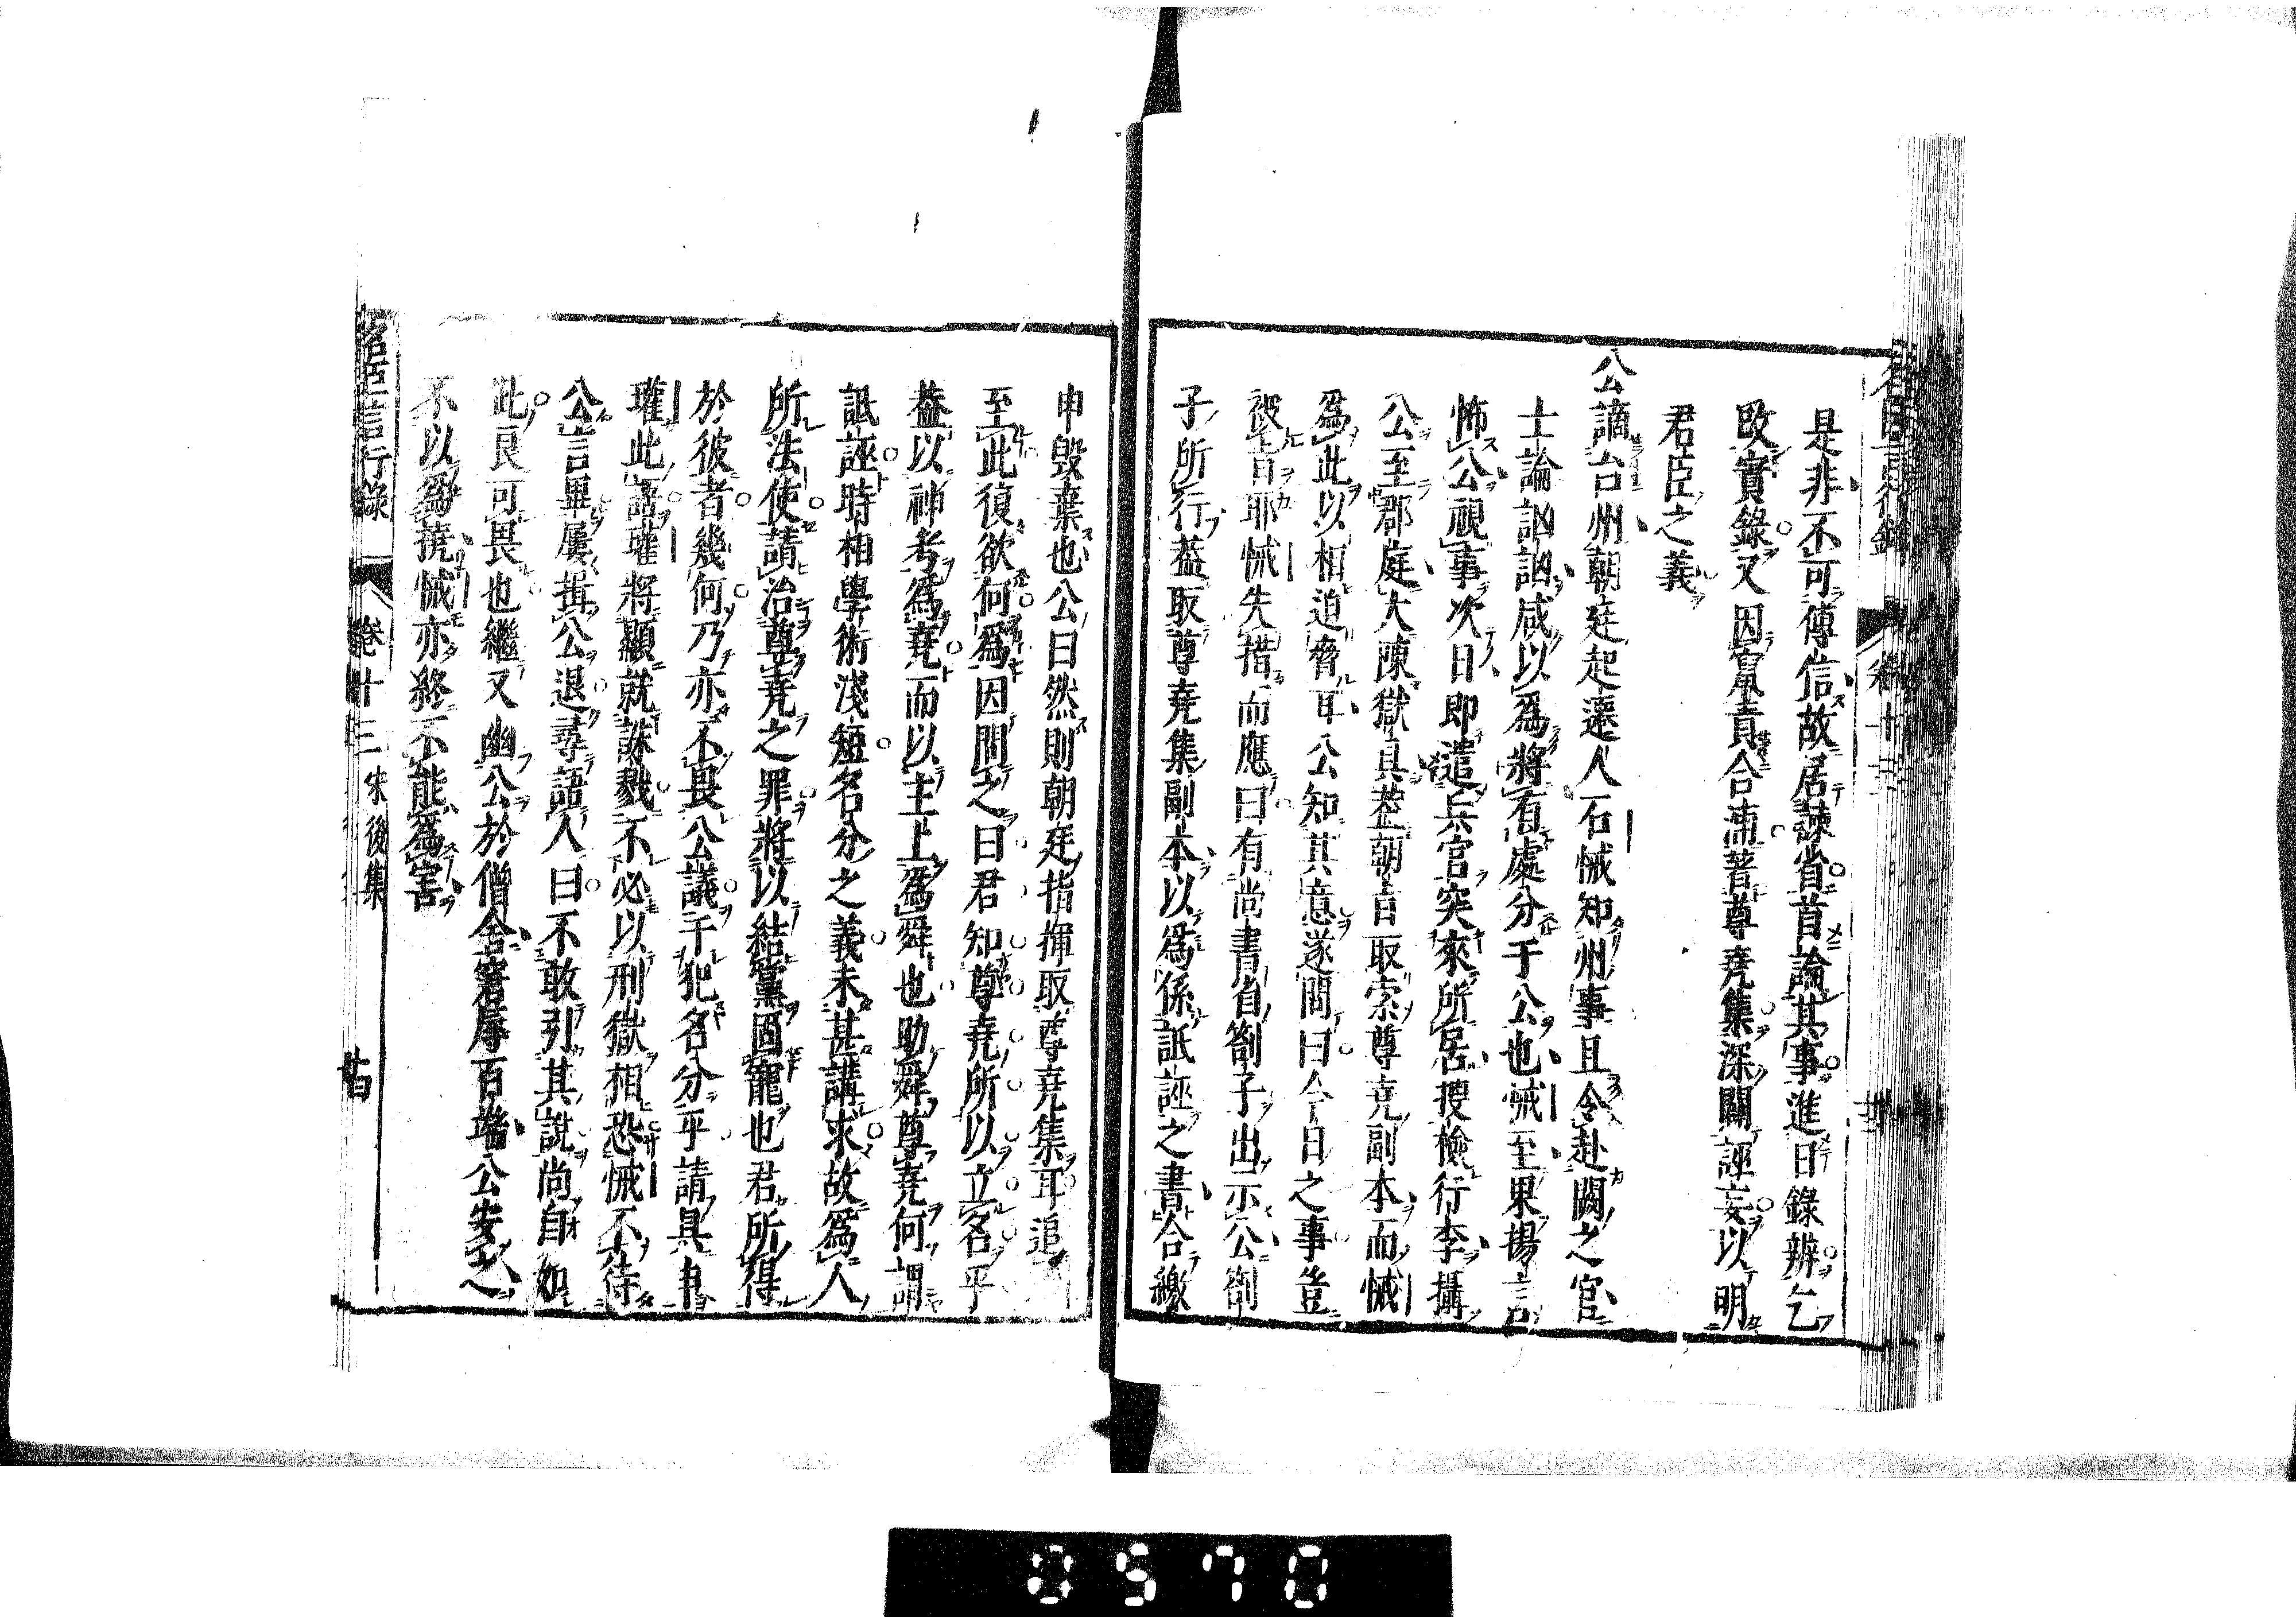 是非不可傳信故居諫省首論其事進日錄辨乞
改實錄又因竄責合浦著尊堯集深闢誣妄以明
君臣之義
公謫台州朝廷起遷人石悈知州事且令赴闕之官
士論訩訩咸以爲將有處分于公也悈至果揚言
怖公視事次日即遣兵官突來所居搜檢行李攝
公至郡庭大陳獄具茬朝旨取索尊堯副本而悈
爲此以相迫脅耳公知其意遂問曰今日之事豈
被旨耶悈失措而應曰有尚書省劄子出示公劄
子所行葢取尊堯集副本以爲係詆誣之書合繳
申毀棄也公曰然則朝廷指揮取尊堯集耳追
至此復欲何爲因問之曰君知尊堯所以立名乎
葢以神考爲堯而以主上爲舜也助舜尊堯何謂
詆誣時相學術淺短名分之義未甚講求故爲人
所法使請治尊堯之罪將以結黨固寵也君所得
於彼者幾何乃亦不畏公議干犯名分乎請具申
瓘此語瓘將顯就誅戮不必以刑獄相恐悈不待
公言畢屢揖公退尋語人曰不敢引其說尚自如
此良可畏也繼又幽公於僧舍窘辱百端公安之
不以爲撓悈亦終不能爲害
名臣言行錄
卷十三
宋後集
0570